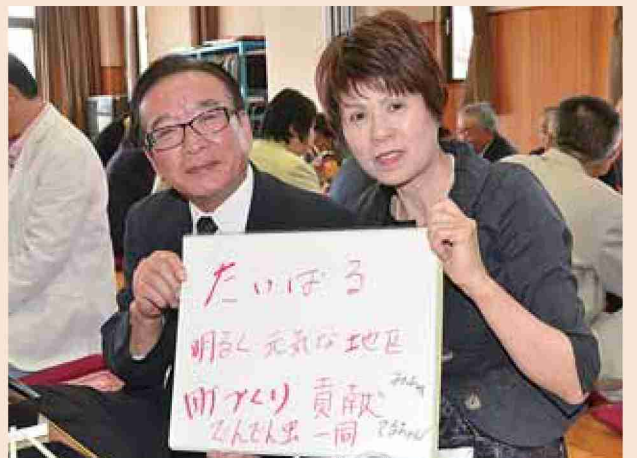 たいばる
明るく元気な地区
町づくり貢献
でんでん虫一同